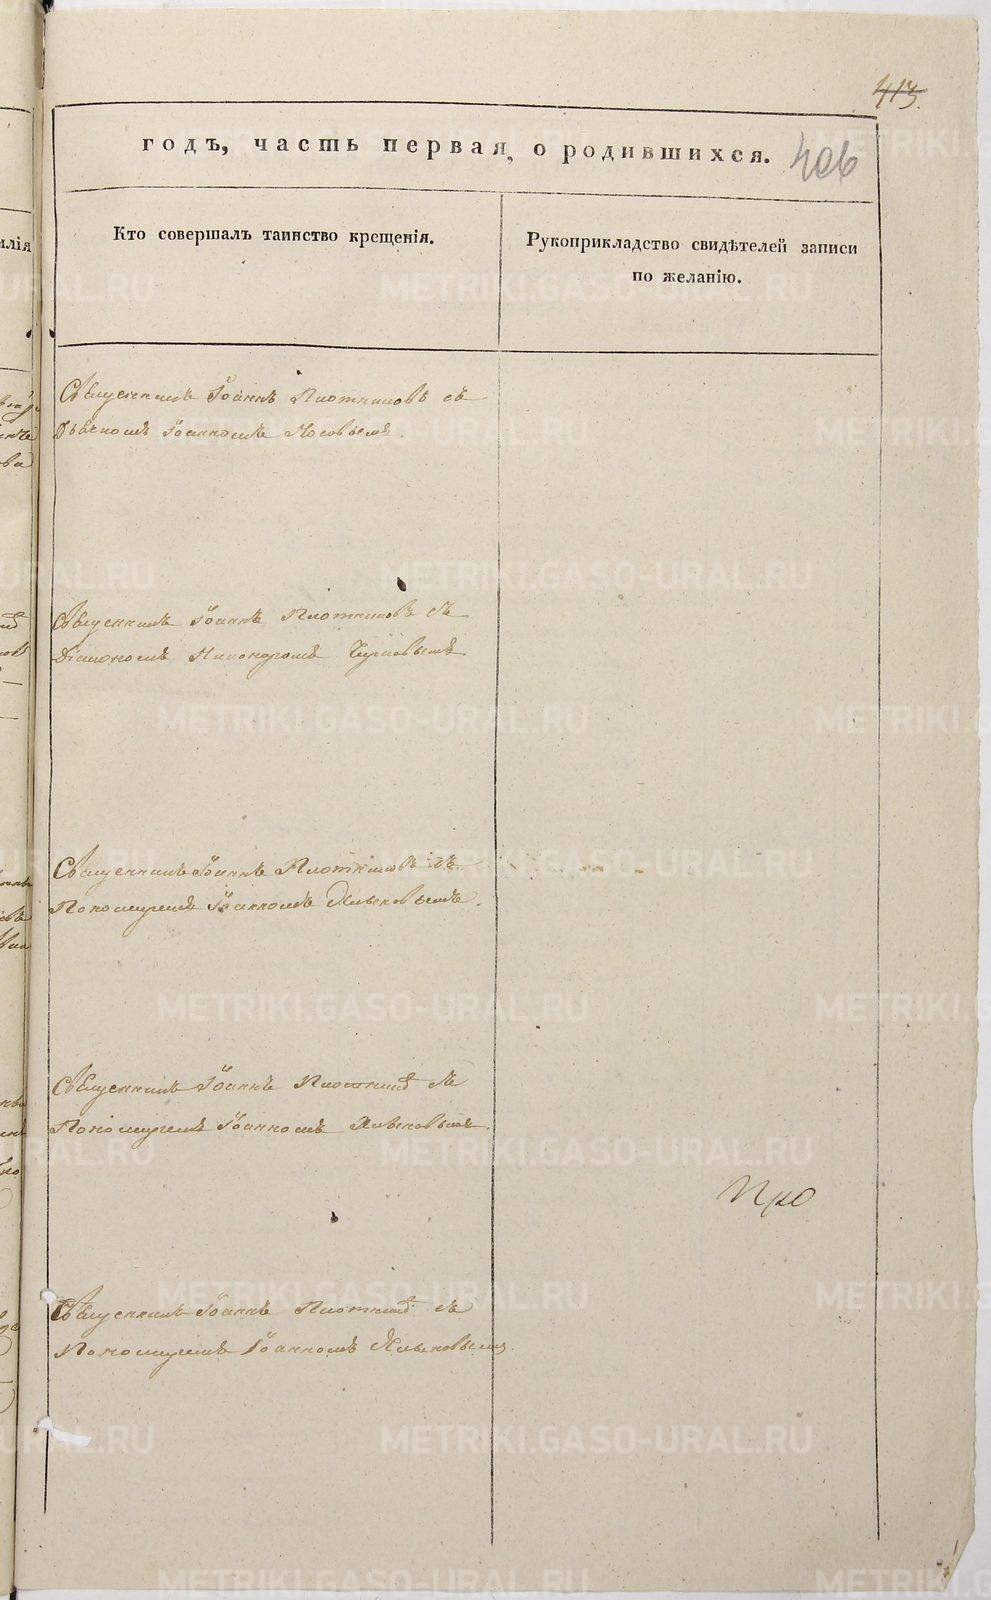 413.
годъ, часть первая, о родившихся. 406
Кто совершалъ таинство крещенія.
Рукоприкладство свидѣтелей записи
по желанію.
Священникъ Іоаннъ Плотниковъ съ
Дьячкомъ Іоанномъ Носовымъ.
Священникъ Іоаннъ Плотниковъ съ
Діакономъ Никандромъ
Священникъ Іоаннъ Плотниковъ съ
Пономаремъ Іоанномъ
Священникъ Іоаннъ Плотниковъ съ
Пономаремъ Іоанномъ
Священникъ Іоаннъ Плотниковъ съ
Пономаремъ Іоанномъ
METRIKI.GASO-URAL.RU